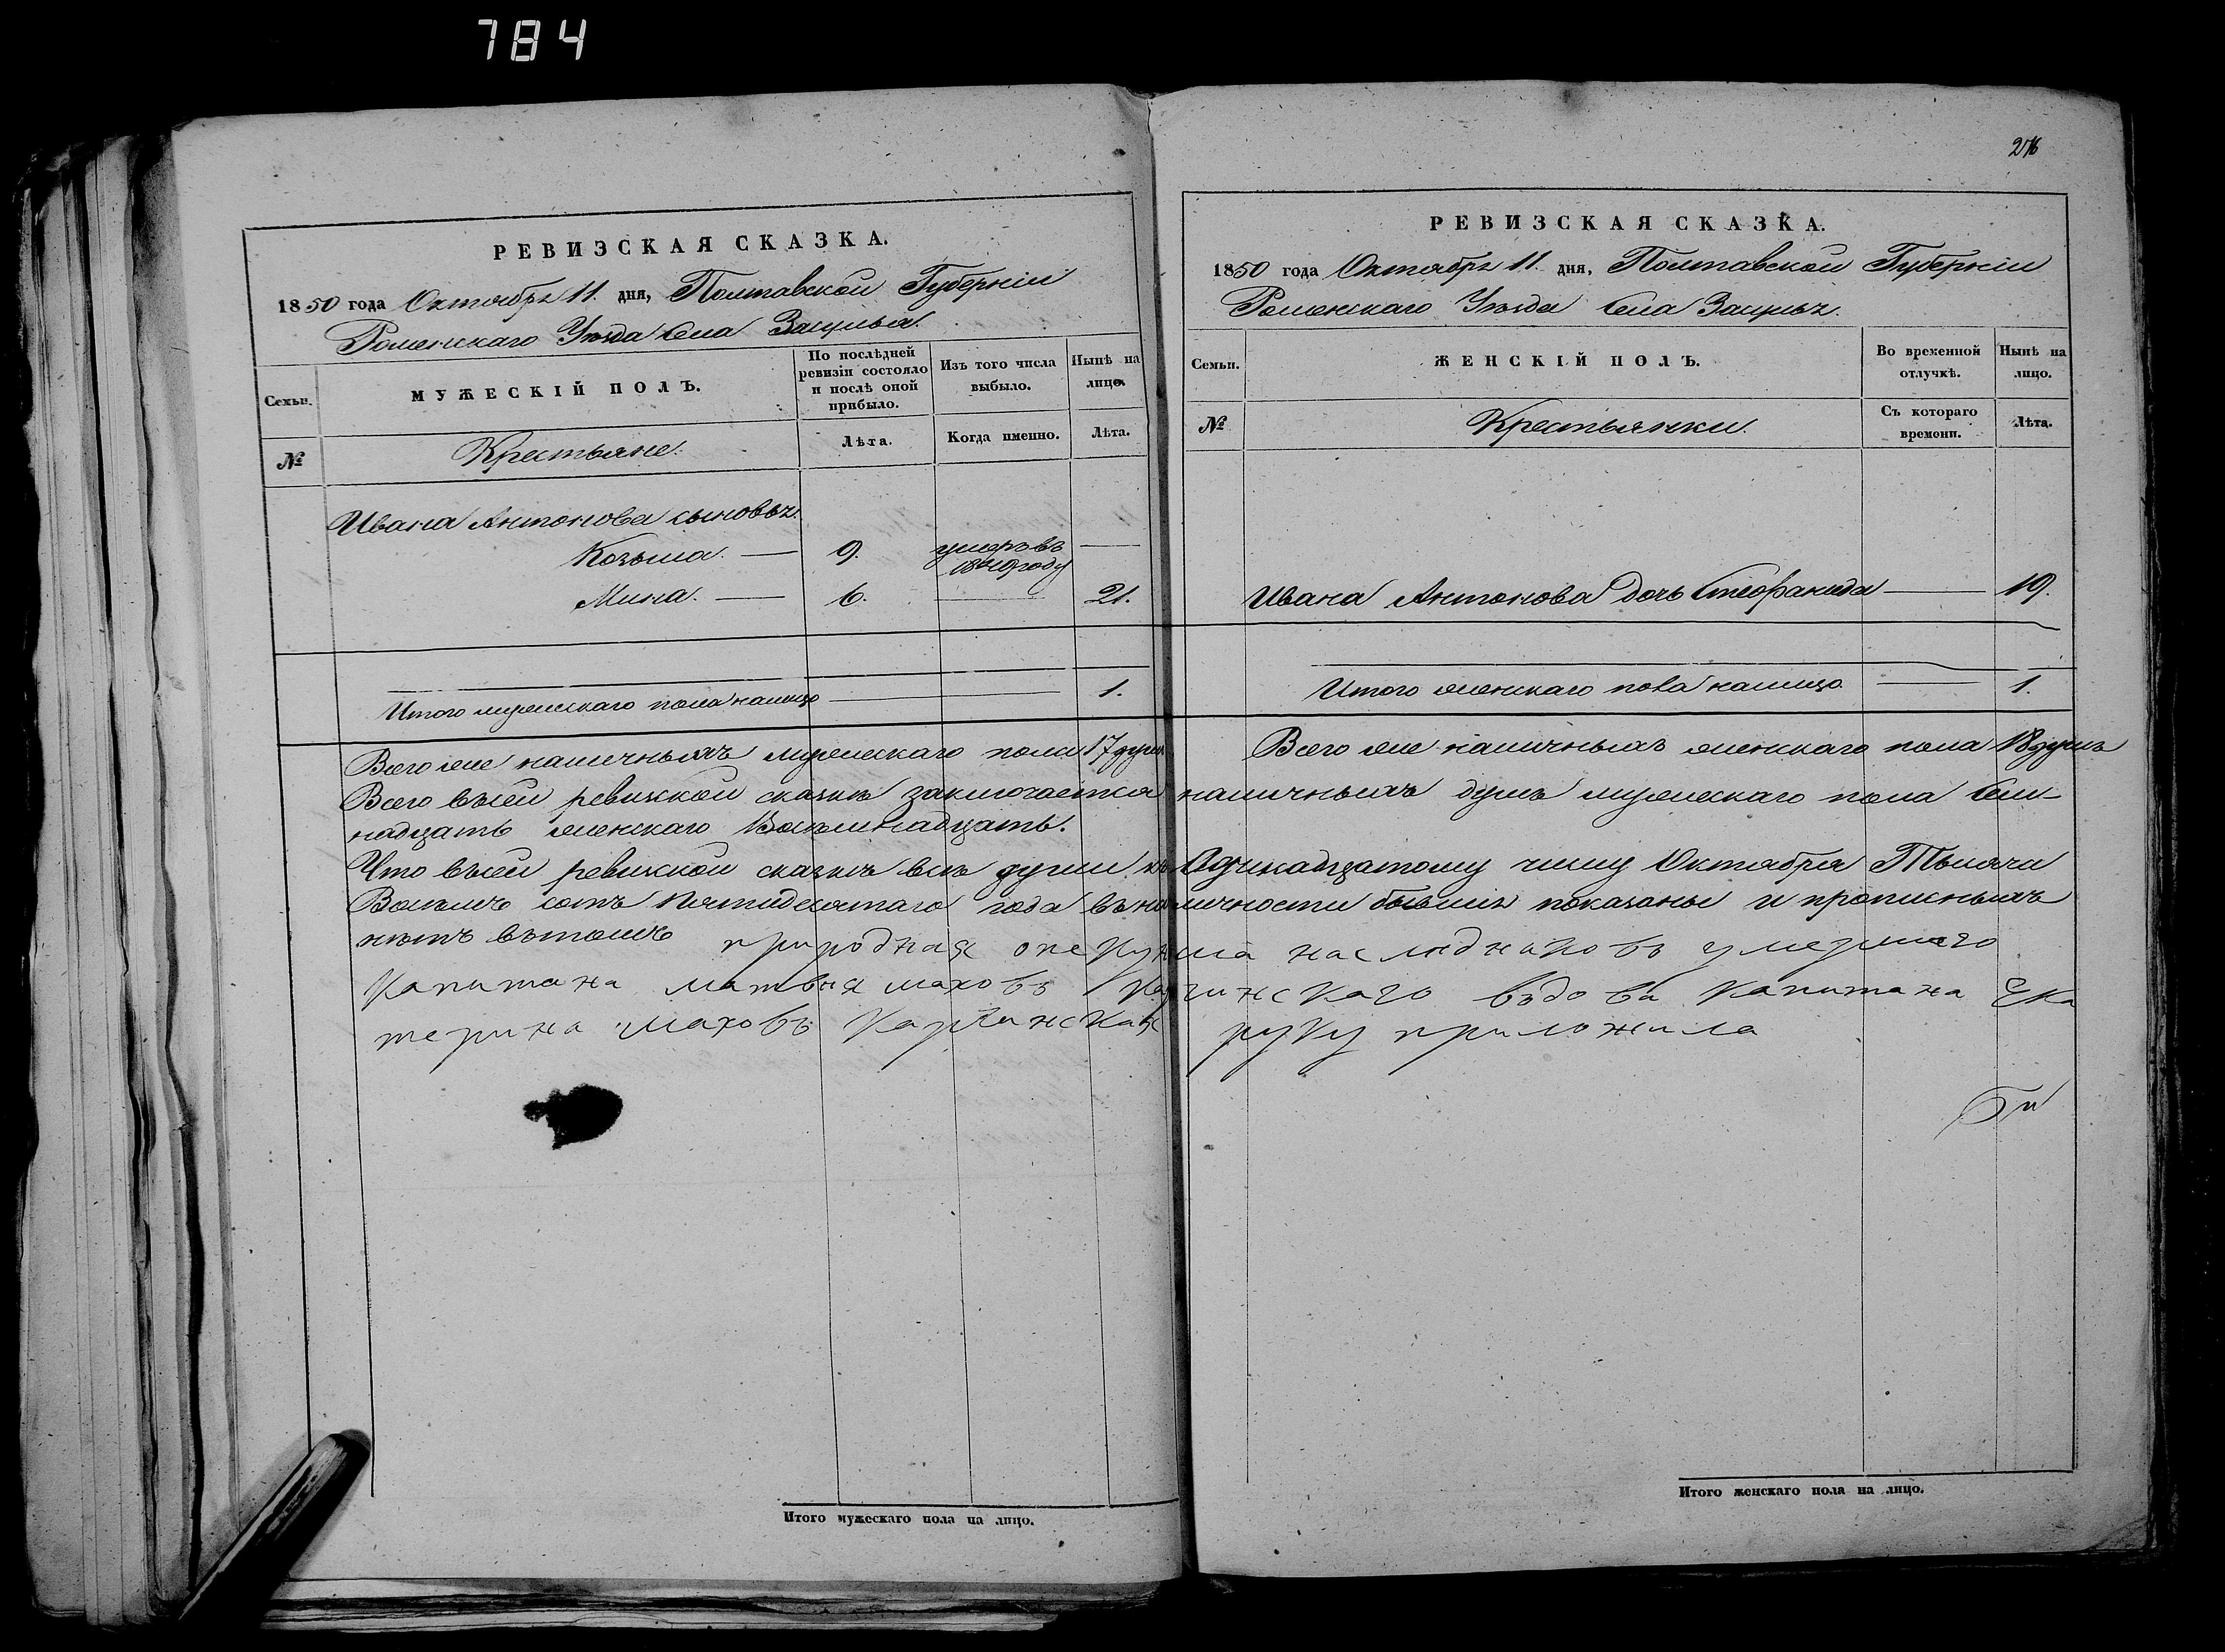 784
276
РЕВИЗСКАЯ СКАЗКА.
1850 года Октября 11. дня, Полтавской Губерніи
Роменскаго Уѣзда Села Засулья.
Семьи.
МУЖЕСКІЙ ПОЛЪ.
По послѣдней ревизіи состояло и послѣ оной прибыло.
Изъ того числа выбыло.
Нынѣ на лицо.
№
Крестьяне.
Лѣта.
Когда именно.
Лѣта.
Ивана Антонова сыновья.
Козьма. — 9. умеръ въ 1840 году —
Мина. — 6. — 21.
Итого мужескаго пола налицо — 1.
РЕВИЗСКАЯ СКАЗКА.
1850 года Октября 11. дня, Полтавской Губерніи
Роменскаго Уѣзда Села Засулья.
Семьи.
ЖЕНСКІЙ ПОЛЪ.
Во временной отлучкѣ.
Нынѣ на лицо.
№
Крестьянки.
Съ котораго времени.
Лѣта.
Ивана Антонова дочь Стефанида — 19.
Итого женскаго пола налицо — 1.
Всего же наличныхъ мужескаго пола 17 душъ
Всего же наличныхъ женскаго пола 18 душъ
Всего въ сей ревизской сказкѣ заключается наличныхъ душъ мужескаго пола Сем-
надцать женскаго Восемнадцать.
Что въ сей ревизской сказкѣ всѣ души къ Одинадцатому числу Октября Тысяча
Восемь сотъ Пятидесятаго года въ наличности бывшія показаны и прописныхъ
нѣтъ въ томъ природная опекунша наслѣдниковъ умершаго
Капитана Матвѣя Маховъ Карчинскаго въдова Капитана Ека
терина Маховъ Карчинская руку приложила
Итого мужескаго пола на лицо.
Итого женскаго пола на лицо.